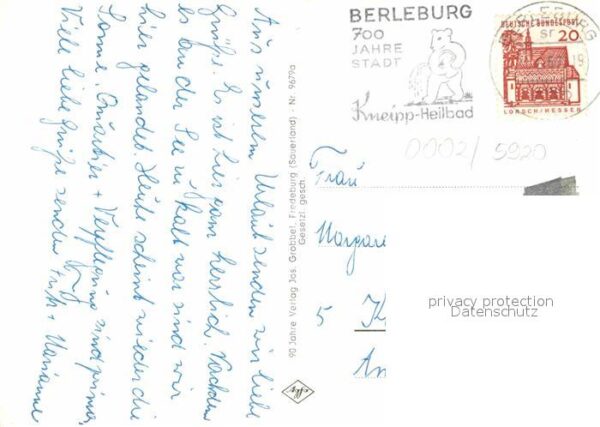 Aus unserem Urlaub senden wir liebe
Grüße. Es ist hier ganz herrlich. Nachdem
es an der See zu kalt war sind wir
hier gelandet. Heute scheint wieder die
Sonne. Quartier + Verpflegung sind prima.
Viele liebe Grüße senden + Marianne
90 Jahre Verlag Jos. Grobbel, Fredeburg (Sauerland) - Nr. 9679a
Gesetzl. gesch.
BERLEBURG
700
JAHRE
STADT
Kneipp-Heilbad
DEUTSCHE BUNDESPOST
20
LORSCH/HESSEN
0002/ 5920
Frau
Margare
5 K
An
privacy protection
Datenschutz